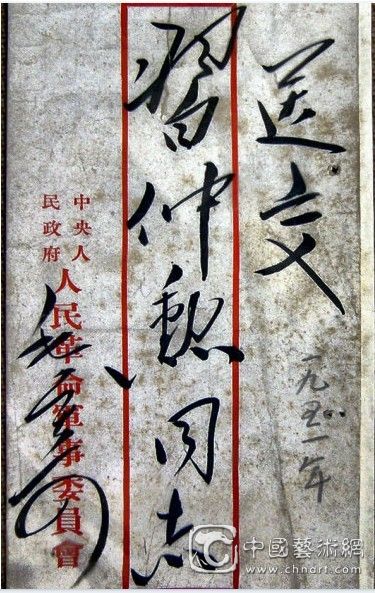 送交
一九五一年
習仲勳同志
中央人
民政府
人民革命軍事委員會
中國藝術網
www.chnart.com